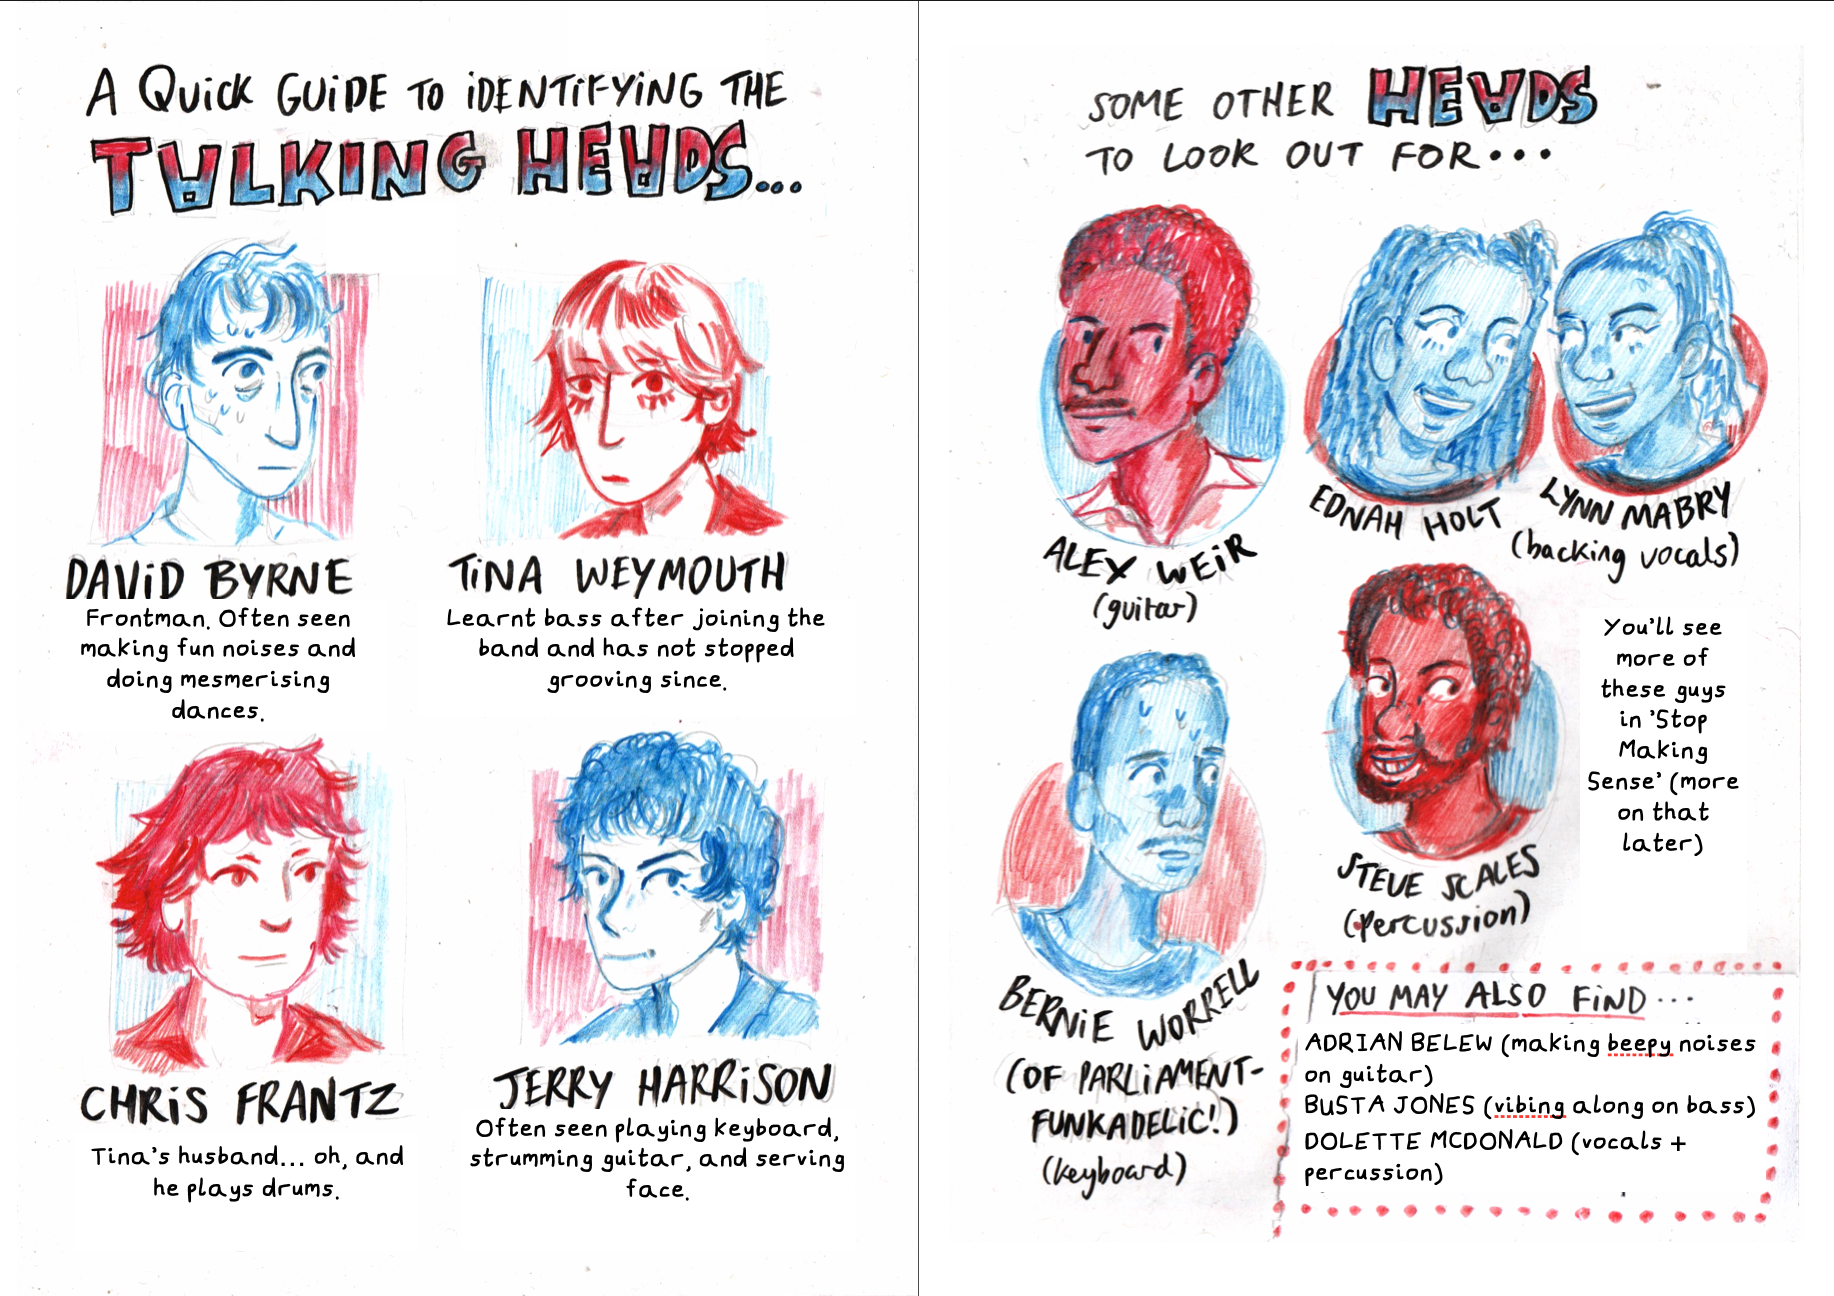 A QUiCK GUiDE TO iDENTiFYiNG THE
TALKING HEADS...
DAViD BYRNE
Frontman. Often seen
making fun noises and
doing mesmerising
dances.
TiNA WEYMOUTH
Learnt bass after joining the
band and has not stopped
grooving since.
CHRiS FRANTZ
Tina's husband... oh, and
he plays drums.
JERRY HARRiSON
Often seen playing keyboard,
strumming guitar, and serving
face.
SOME OTHER HEADS
TO LOOK OUT FOR...
ALEX WEiR
(guitar)
EDNAH HOLT
LYNN MABRY
(backing vocals)
BERNiE WORRELL
(OF PARLiAMENT-
FUNKADELiC!)
(keyboard)
STEVE SCALES
(percussion)
You'll see
more of
these guys
in 'Stop
Making
Sense' (more
on that
later)
YOU MAY ALSO FiND...
ADRIAN BELEW (making beepy noises
on guitar)
BUSTA JONES (vibing along on bass)
DOLETTE MCDONALD (vocals +
percussion)